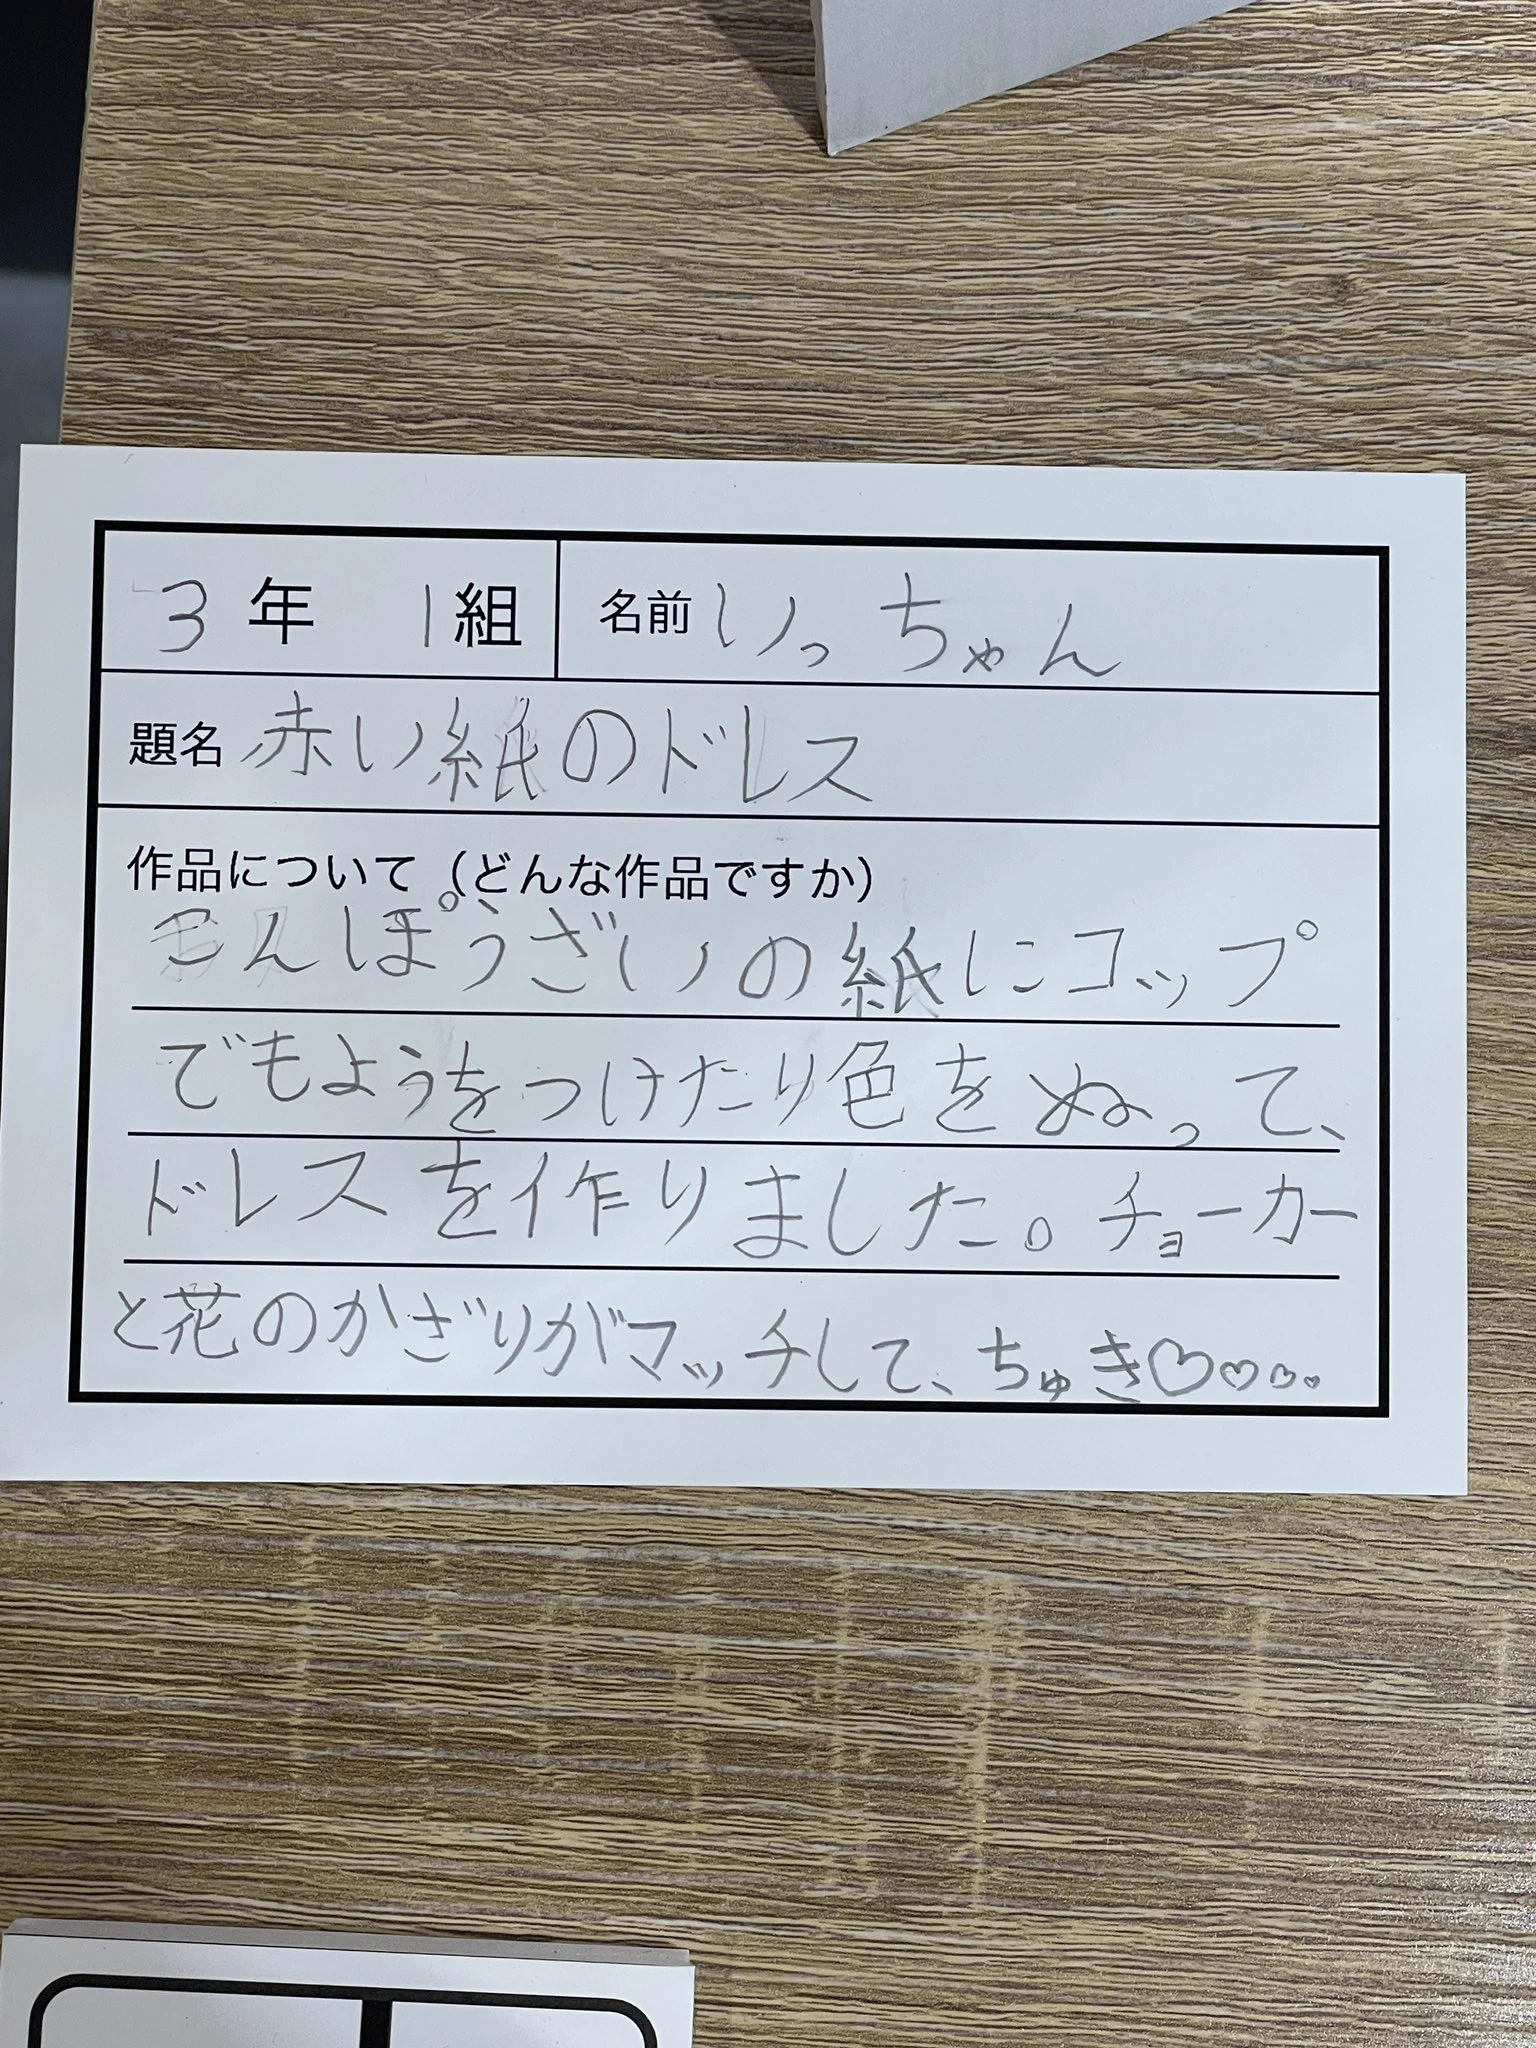 3年 1組 名前 いっちゃん
題名 赤い紙のドレス
作品について(どんな作品ですか)
こんぽうざいの紙にコップ
でもようをつけたり色をぬって、
ドレスを作りました。チョーカー
と花のかざりがマッチして、ちゅき♡♡♡♡